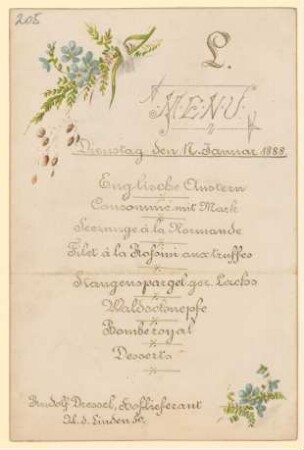 205
L.
MENU
Dienstag den 17. Januar 1888
Englische Austern
Consommé mit Mark
Seezunge à la Normande
Filet à la Rossini aux truffes
Stangenspargel ger. Lachs
Waldschnepfe
Bombe royal
Desserts
Rudolf Dressel, Hoflieferant
U. d. Linden 50.